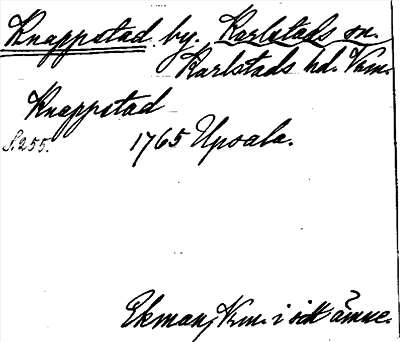 Knappstad by. Karlstads sn.
Karlstads hd. Vrm.
Knappstad
S. 255. 1765 Upsala.
Ekman, Vrm. i sitt ämne.